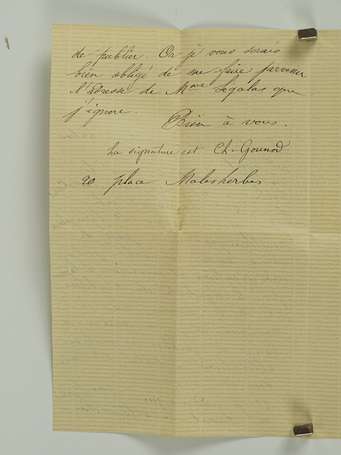 de publier. Or je vous serais
bien obligé de me faire parvenir
l'adresse de Mme Ségalas que
j'ignore.
Bien à vous.
La signature est Ch. Gounod
20 place Malesherbes